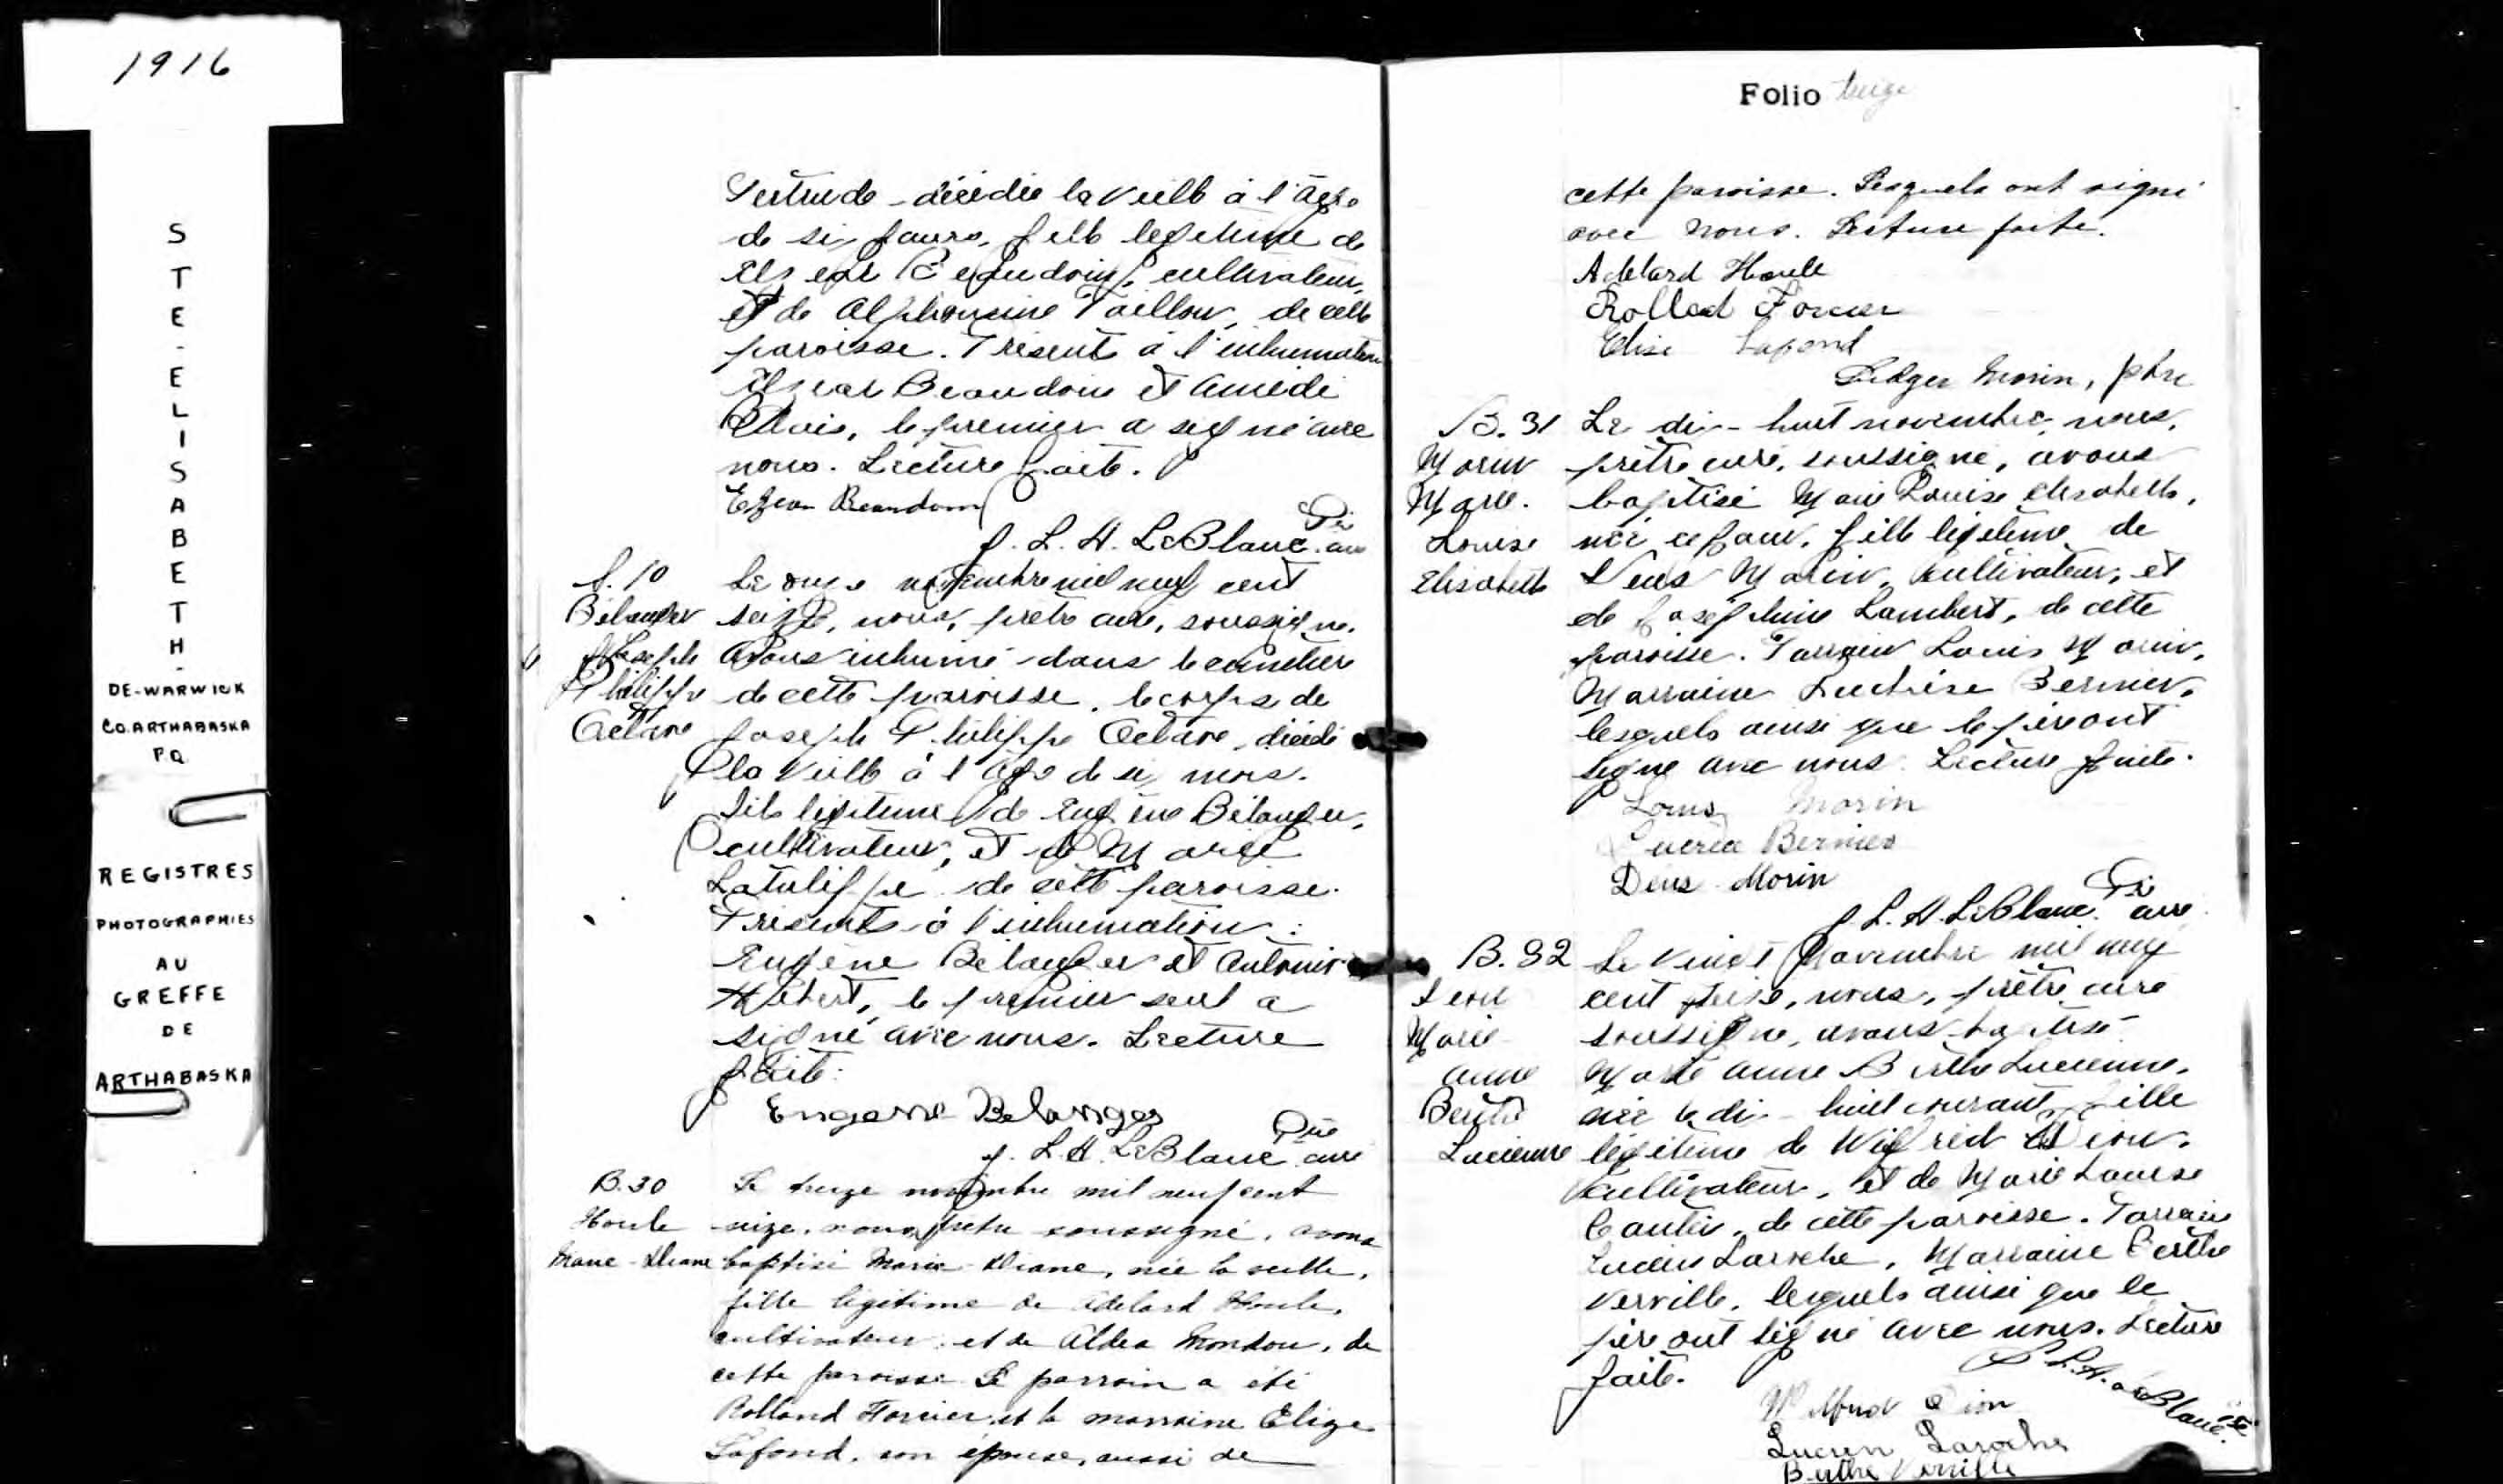 1916
STE-ELISABETH-
DE-WARWICK
CO. ARTHABASKA
P.Q.
REGISTRES
PHOTOGRAPHIES
AU
GREFFE
DE
ARTHABASKA
Gertrude décédée la veille à l'âge
de six jours, fille légitime de
Elzear Beaudoin, cultivateur,
et de Alphonsine Taillon, de cette
paroisse. Présents à l'inhumation
Elzear Beaudoin et Amédé
Blais, le premier a signé avec
nous. Lecture faite.
Elzear Beaudoin
J. L. H. LeBlanc Ptre curé
S. 10
Bélanger
Joseph
Philippe
Octave
Le onze novembre mil neuf cent
seize, nous, prêtre curé, soussigné,
avons inhumé dans le cimetière
de cette paroisse, le corps de
Joseph Philippe Octave, décédé
la veille à l'âge de six mois.
Fils légitime de Eugène Bélanger,
cultivateur, et de Marie
Latulippe de cette paroisse.
Présents à l'inhumation :
Eugène Bélanger et Antonio
Hébert, le premier seul a
signé avec nous. Lecture
faite.
Eugene Belanger
J. L. H. LeBlanc Ptre curé
B. 30
Houle
Marie-Diane
Le treize novembre mil neuf cent
seize, nous, prêtre soussigné, avons
baptisé Marie-Diane, née la veille,
fille légitime de Adelard Houle,
cultivateur, et de Aldea Mondou, de
cette paroisse. Le parrain a été
Rolland Forcier et la marraine Elize
Lafond, son épouse, aussi de
Folio treize
cette paroisse. Lesquels ont signé
avec nous. Lecture faite.
Adelard Houle
Rolland Forcier
Elise Lafond
Ludger Morin, ptre
B. 31
Morin
Marie
Louise
Elisabeth
Le dix-huit novembre, nous,
prêtre curé, soussigné, avons
baptisé Marie Louise Elisabeth,
née ce jour, fille légitime de
Deus Morin, cultivateur, et
de Joséphine Lambert, de cette
paroisse. Parrain Louis Morin,
Marraine Bernier,
lesquels ainsi que le père ont
signé avec nous. Lecture faite.
Louis Morin
Bernier
Deus Morin
J. L. H. LeBlanc Ptre curé
B. 32
Dion
Marie
Anne
Berthe
Lucienne
Le vingt novembre mil neuf
cent seize, nous, prêtre curé
soussigné, avons baptisé
Marie Anne Berthe Lucienne,
née le dix-huit courant, fille
légitime de Wilfrid Dion,
cultivateur, et de Marie Louise
de cette paroisse. Parrain
Lucien Laroche, Marraine Berthe
Verville, lesquels ainsi que le
père ont signé avec nous. Lecture
faite.
J. L. H. LeBlanc Ptre
Wilfrid Dion
Lucien Laroche
Berthe Verville